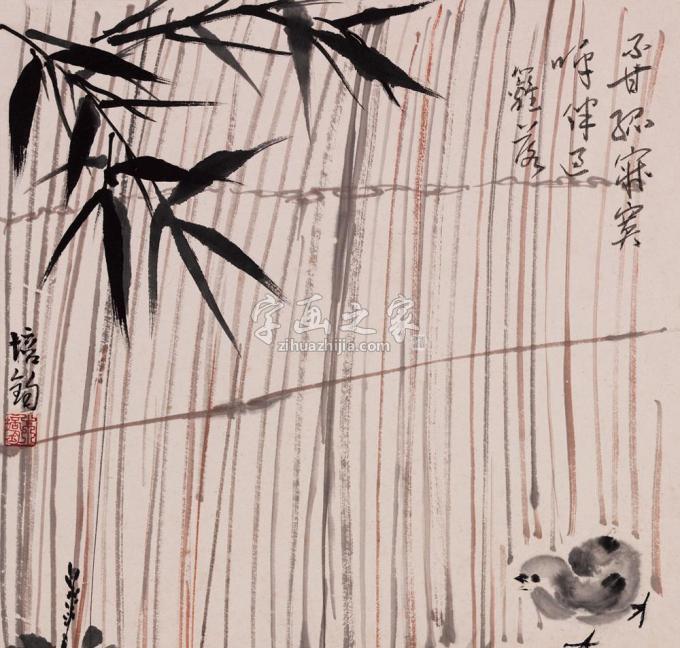 不甘孤寂寞
呼伴过
籬落
培钧
字画之家
zihuazhijia.com